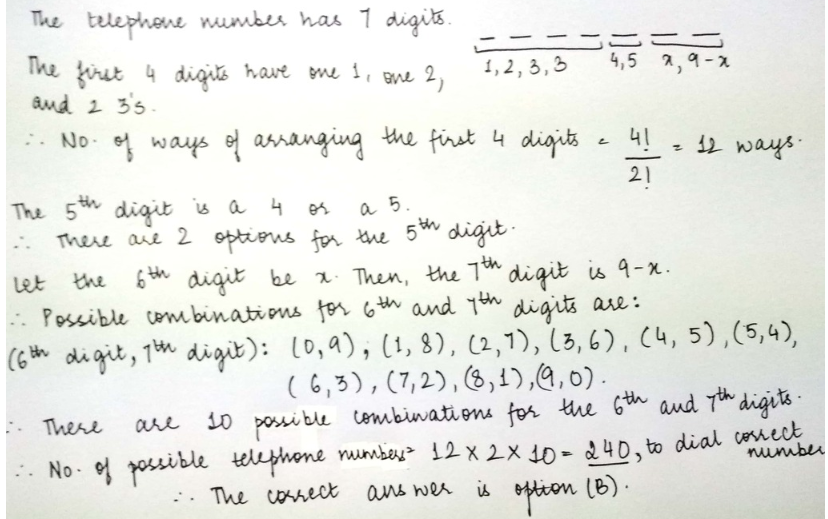 The telephone number has 7 digits.
_ _ _ _ _ _ _
1, 2, 3, 3 4,5 x, 9-x
The first 4 digits have one 1, one 2,
and 2 3's.
∴ No. of ways of arranging the first 4 digits = 4!/2! = 12 ways.
The 5th digit is a 4 or a 5.
∴ There are 2 options for the 5th digit.
Let the 6th digit be x. Then, the 7th digit is 9-x.
∴ Possible combinations for 6th and 7th digits are:
(6th digit, 7th digit): (0,9), (1, 8), (2,7), (3,6), (4, 5), (5,4),
(6,3), (7,2), (8,1), (9,0).
∴ There are 10 possible combinations for the 6th and 7th digits.
∴ No. of possible telephone numbers = 12 x 2 x 10 = 240, to dial correct number
∴ The correct answer is option (B).